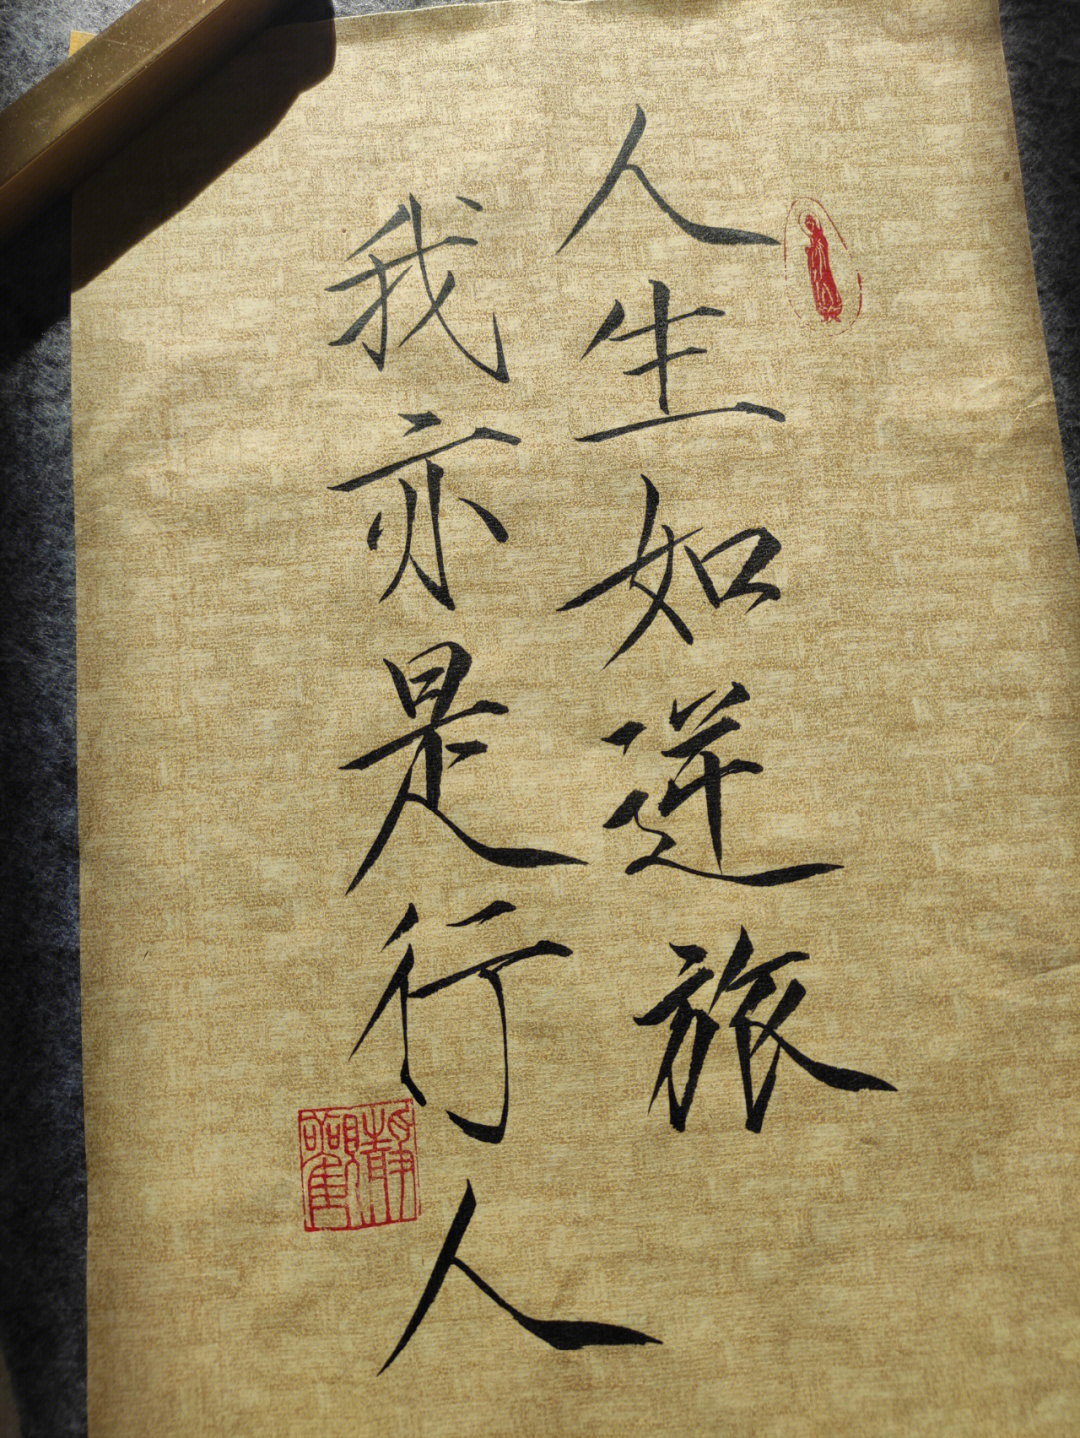 人生如逆旅
我亦是行人
静观